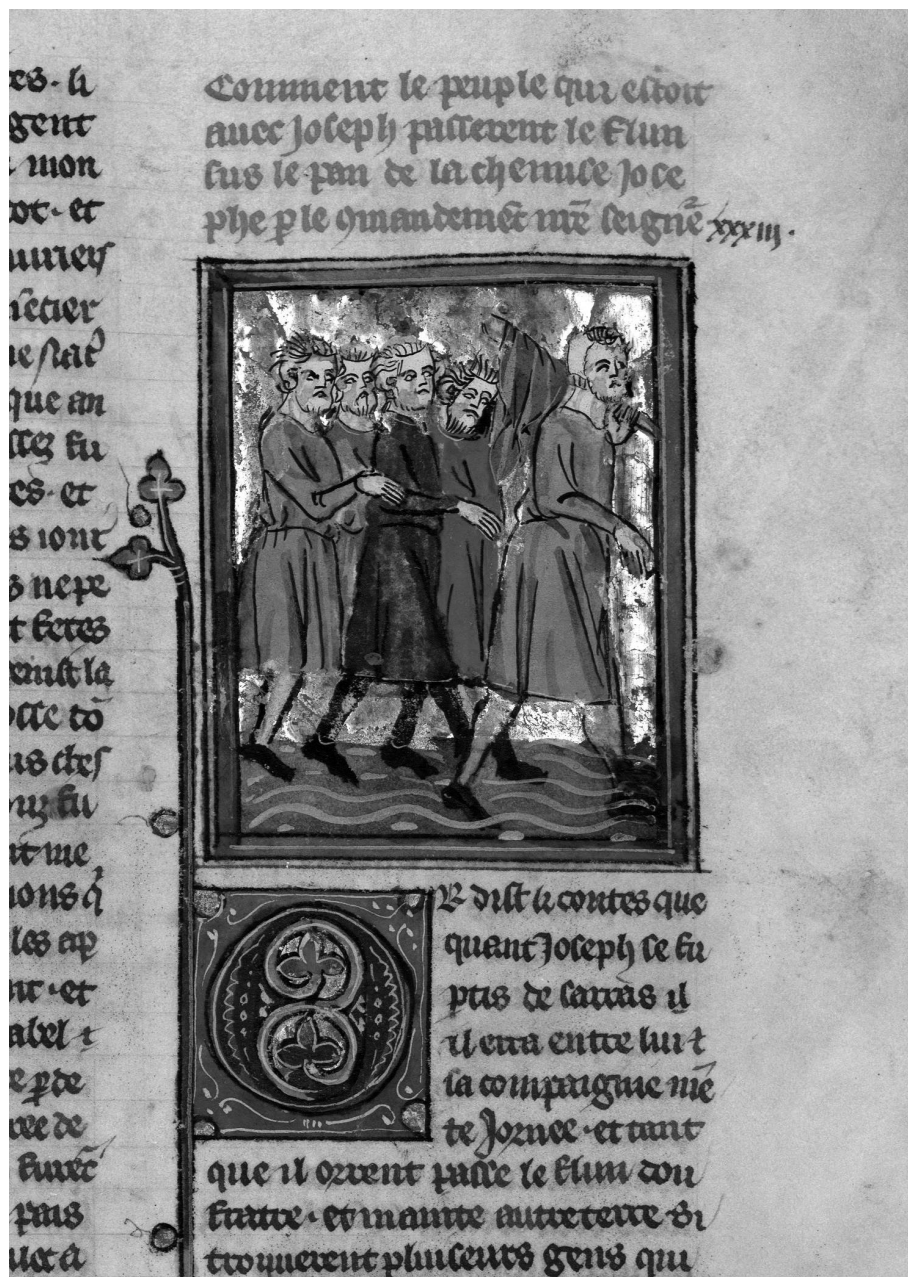 es · li
gent
mon
tot · et
que an
ssez fu
es · et
s iont
s nepe
t fetes
enist la
osse cō
us cles
uz fu
nt me
ions q̄
les ap
nt · et
abel ⁊
e ꝑde
ree de
pais
Comment le peuple qui estoit
auec Joseph passerent le flun
sus le pan de la chemise Jose
phe ꝑ le ꝯmandemēt nr̄e seignē xxxiij ·
OR dist li contes que
quant Joseph se fu
ptis de sarras il
il erra entre lui ⁊
sa compaignie mē
te Jornee · et tant
que il orrent passe le flun dou
frate · et mainte autre terre si
trouuerent pluiseurs gens qui